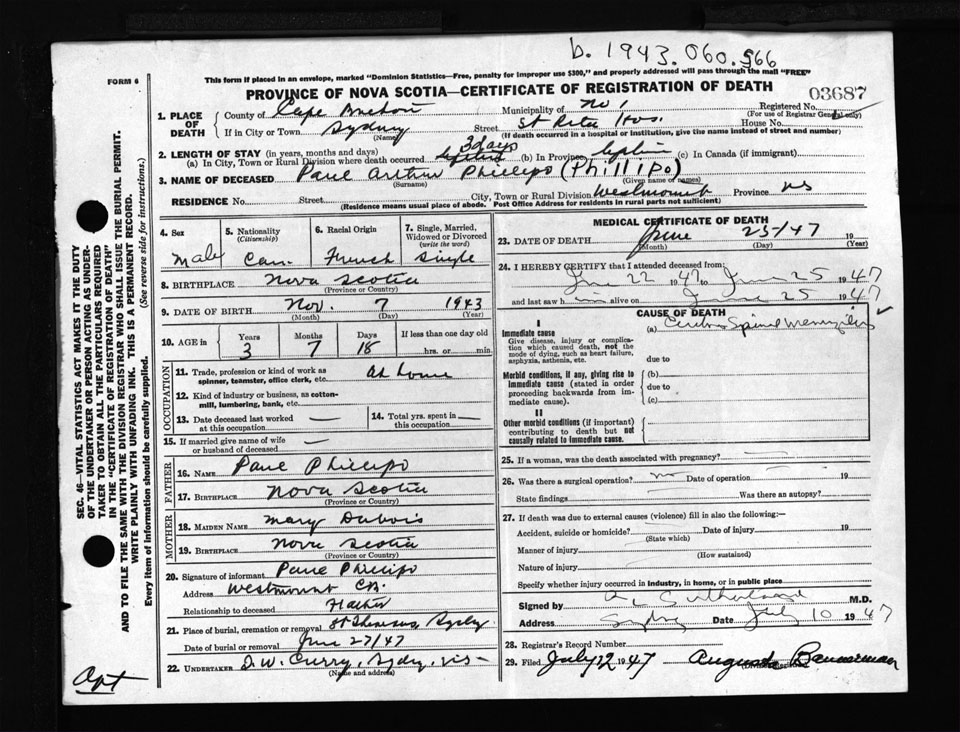 b. 1943.060.566
FORM 6
This form if placed in an envelope, marked "Dominion Statistics—Free, penalty for improper use $300," and properly addressed will pass through the mail "FREE"
PROVINCE OF NOVA SCOTIA—CERTIFICATE OF REGISTRATION OF DEATH
03687
1. PLACE OF DEATH
County of Cape Breton Municipality of No 1 Registered No.
(For use of Registrar General only)
If in City or Town Sydney Street St Rita Hos. House No.
(Name) (If death occurred in a hospital or institution, give the name instead of street and number)
2. LENGTH OF STAY (in years, months and days)
3 days
(a) In City, Town or Rural Division where death occurred (b) In Province lifetime (c) In Canada (if immigrant)
3. NAME OF DECEASED Paul Arthur Phillipo (Phillipo)
(Surname) (Given name or names)
RESIDENCE No. Street City, Town or Rural Division Westmount Province NS
(Residence means usual place of abode. Post Office Address for residents in rural parts not sufficient)
4. Sex
Male
5. Nationality (Citizenship)
Can.
6. Racial Origin
French
7. Single, Married, Widowed or Divorced (write the word)
Single
8. BIRTHPLACE Nova Scotia
(Province or Country)
9. DATE OF BIRTH Nov. 7 1943
(Month) (Day) (Year)
10. AGE in Years Months Days If less than one day old
3 7 18 hrs. or min.
OCCUPATION
11. Trade, profession or kind of work as spinner, teamster, office clerk, etc. at home
12. Kind of industry or business, as cotton-mill, lumbering, bank, etc.
13. Date deceased last worked at this occupation —
14. Total yrs. spent in this occupation —
15. If married give name of wife or husband of deceased —
FATHER
16. NAME Paul Phillipo
17. BIRTHPLACE Nova Scotia
(Province or Country)
MOTHER
18. MAIDEN NAME Mary Dubois
19. BIRTHPLACE Nova Scotia
(Province or Country)
20. Signature of informant Paul Phillipo
Address Westmount CB.
Relationship to deceased Father
21. Place of burial, cremation or removal St Theresas, Sydney
Date of burial or removal June 27/47
22. UNDERTAKER D.W. Curry, Sydney, NS
(Name and address)
MEDICAL CERTIFICATE OF DEATH
23. DATE OF DEATH June 25/47 19
(Month) (Day) (Year)
24. I HEREBY CERTIFY that I attended deceased from:
June 22 1947 to June 25 1947
and last saw him alive on June 25 1947
CAUSE OF DEATH
I
Immediate cause
Give disease, injury or complication which caused death, not the mode of dying, such as heart failure, asphyxia, asthenia, etc.
(a) Cerebro Spinal Meningitis
due to
Morbid conditions, if any, giving rise to immediate cause (stated in order proceeding backwards from immediate cause).
(b)
due to
(c)
II
Other morbid conditions (if important) contributing to death but not causally related to immediate cause.
25. If a woman, was the death associated with pregnancy? —
26. Was there a surgical operation? no Date of operation 19
State findings Was there an autopsy?
27. If death was due to external causes (violence) fill in also the following:—
Accident, suicide or homicide? Date of injury 19
(State which)
Manner of injury
(How sustained)
Nature of injury
Specify whether injury occurred in industry, in home, or in public place
Signed by Sutherland M.D.
Address Sydney Date July 10 1947
28. Registrar's Record Number
29. Filed July 12 1947 Bannerman
SEC. 46—VITAL STATISTICS ACT MAKES IT THE DUTY
OF THE UNDERTAKER OR PERSON ACTING AS UNDER-
TAKER TO OBTAIN ALL THE PARTICULARS REQUIRED
IN THE "CERTIFICATE OF REGISTRATION OF DEATH"
AND TO FILE THE SAME WITH THE DIVISION REGISTRAR WHO SHALL ISSUE THE BURIAL PERMIT.
WRITE PLAINLY WITH UNFADING INK. THIS IS A PERMANENT RECORD.
Every item of information should be carefully supplied. (See reverse side for instructions.)